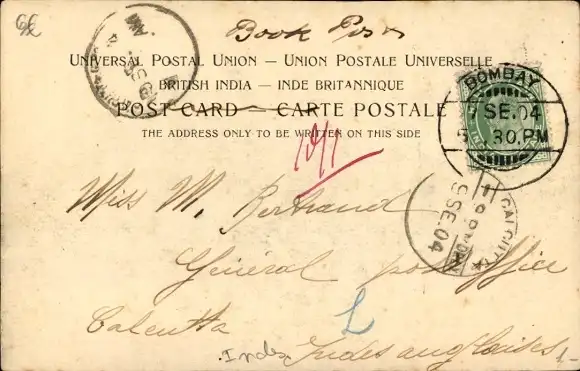 Book Post
UNIVERSAL POSTAL UNION — UNION POSTALE UNIVERSELLE
BRITISH INDIA — INDE BRITANNIQUE
POST CARD — CARTE POSTALE
THE ADDRESS ONLY TO BE WRITTEN ON THIS SIDE
BOMBAY
7 SE.04
5 30.PM
CALCUTTA
9 SE.04
Miss M. Bertrand
Général post office
L
Calcutta
Indes Indes anglaises